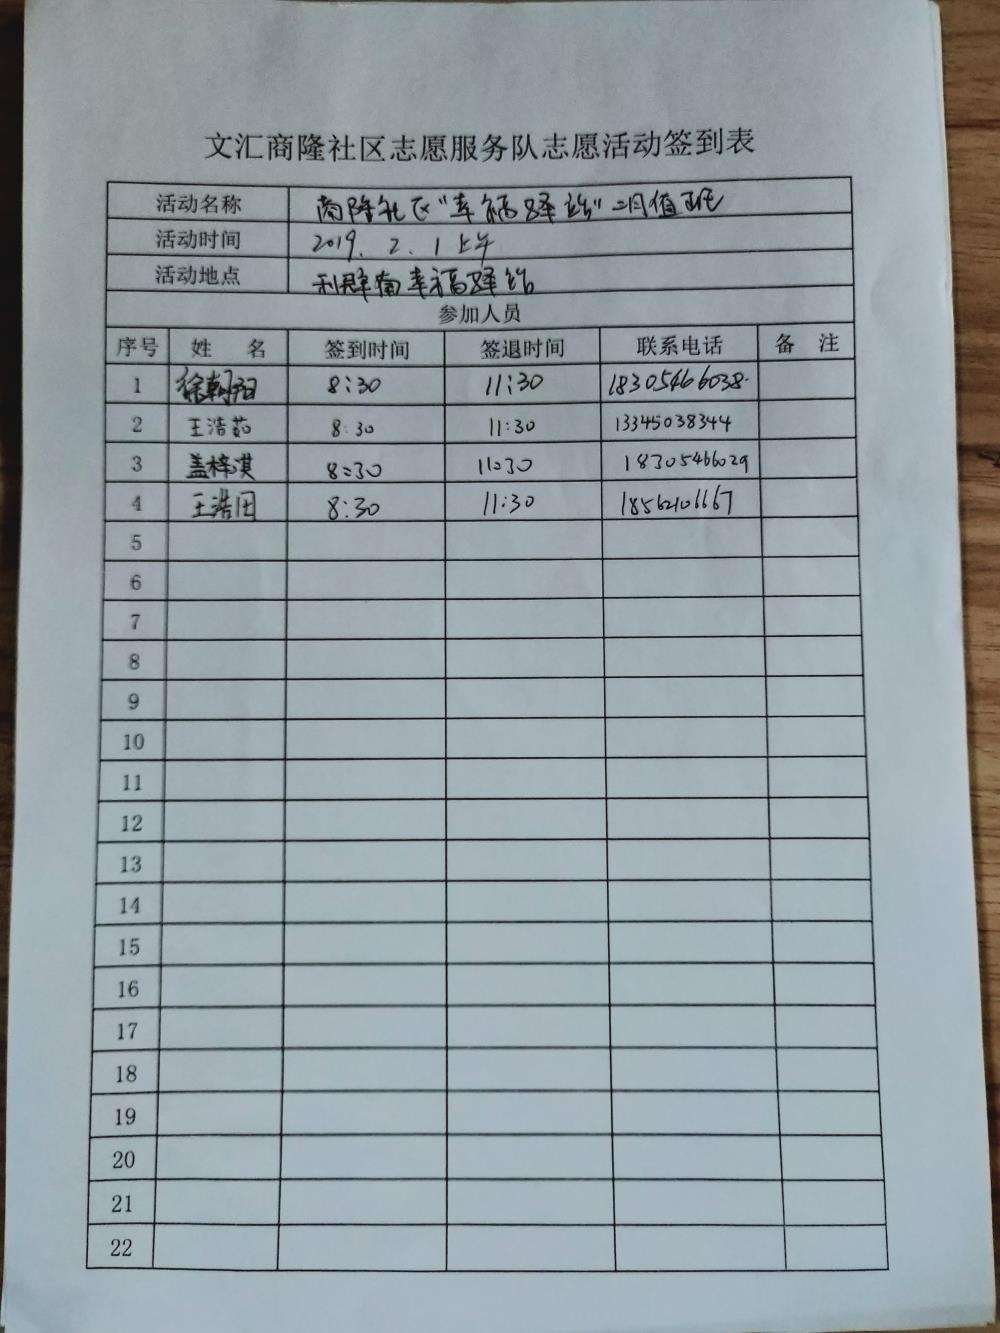 文汇商隆社区志愿服务队志愿活动签到表
活动名称 商隆社区“幸福驿站”二月值班
活动时间 2019.2.1上午
活动地点 利群南幸福驿站
参加人员
序号 姓名 签到时间 签退时间 联系电话 备注
1 徐朝阳 8:30 11:30 18305466038
2 王浩茹 8:30 11:30 13345038344
3 盖梓淇 8:30 11:30 18305466029
4 王浩田 8:30 11:30 18562106667
5
6
7
8
9
10
11
12
13
14
15
16
17
18
19
20
21
22